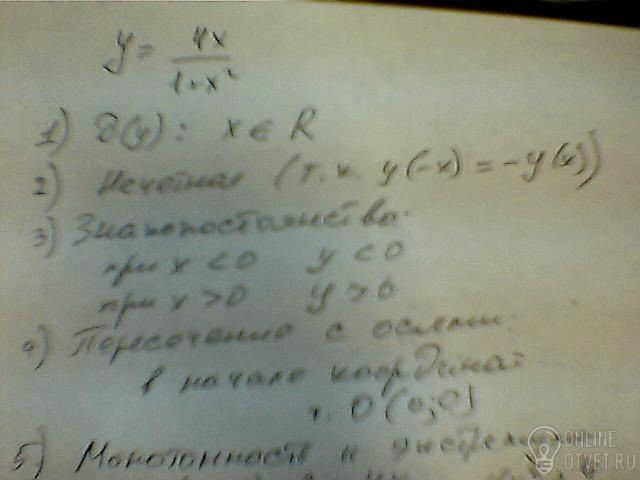 y = 4x / 1+x²
1) D(y): x ∈ R
2) Нечетная (т.к. y(-x) = -y(x))
3) Знакопостоянство.
при x < 0 y < 0
при x > 0 y > 0
4) Пересечение с осями:
в начале координат
т. O (0;0)
5) Монотонность и экстремумы
ONLINE
OTVET.RU